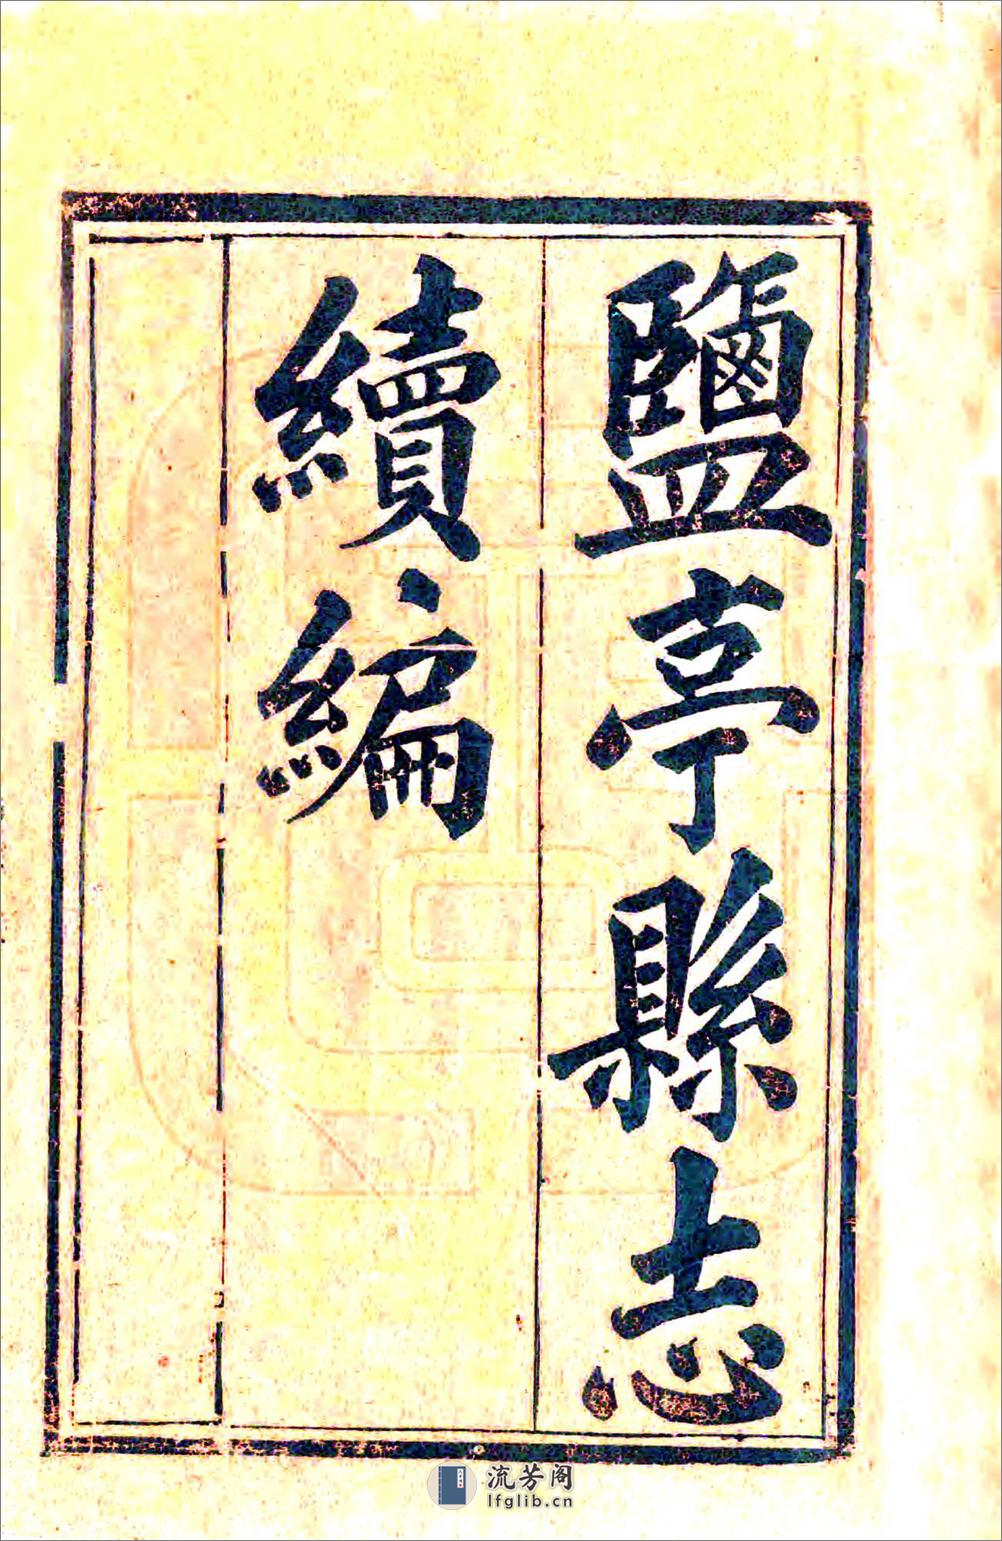 鹽亭縣志
續編
流芳阁
lfglib.cn